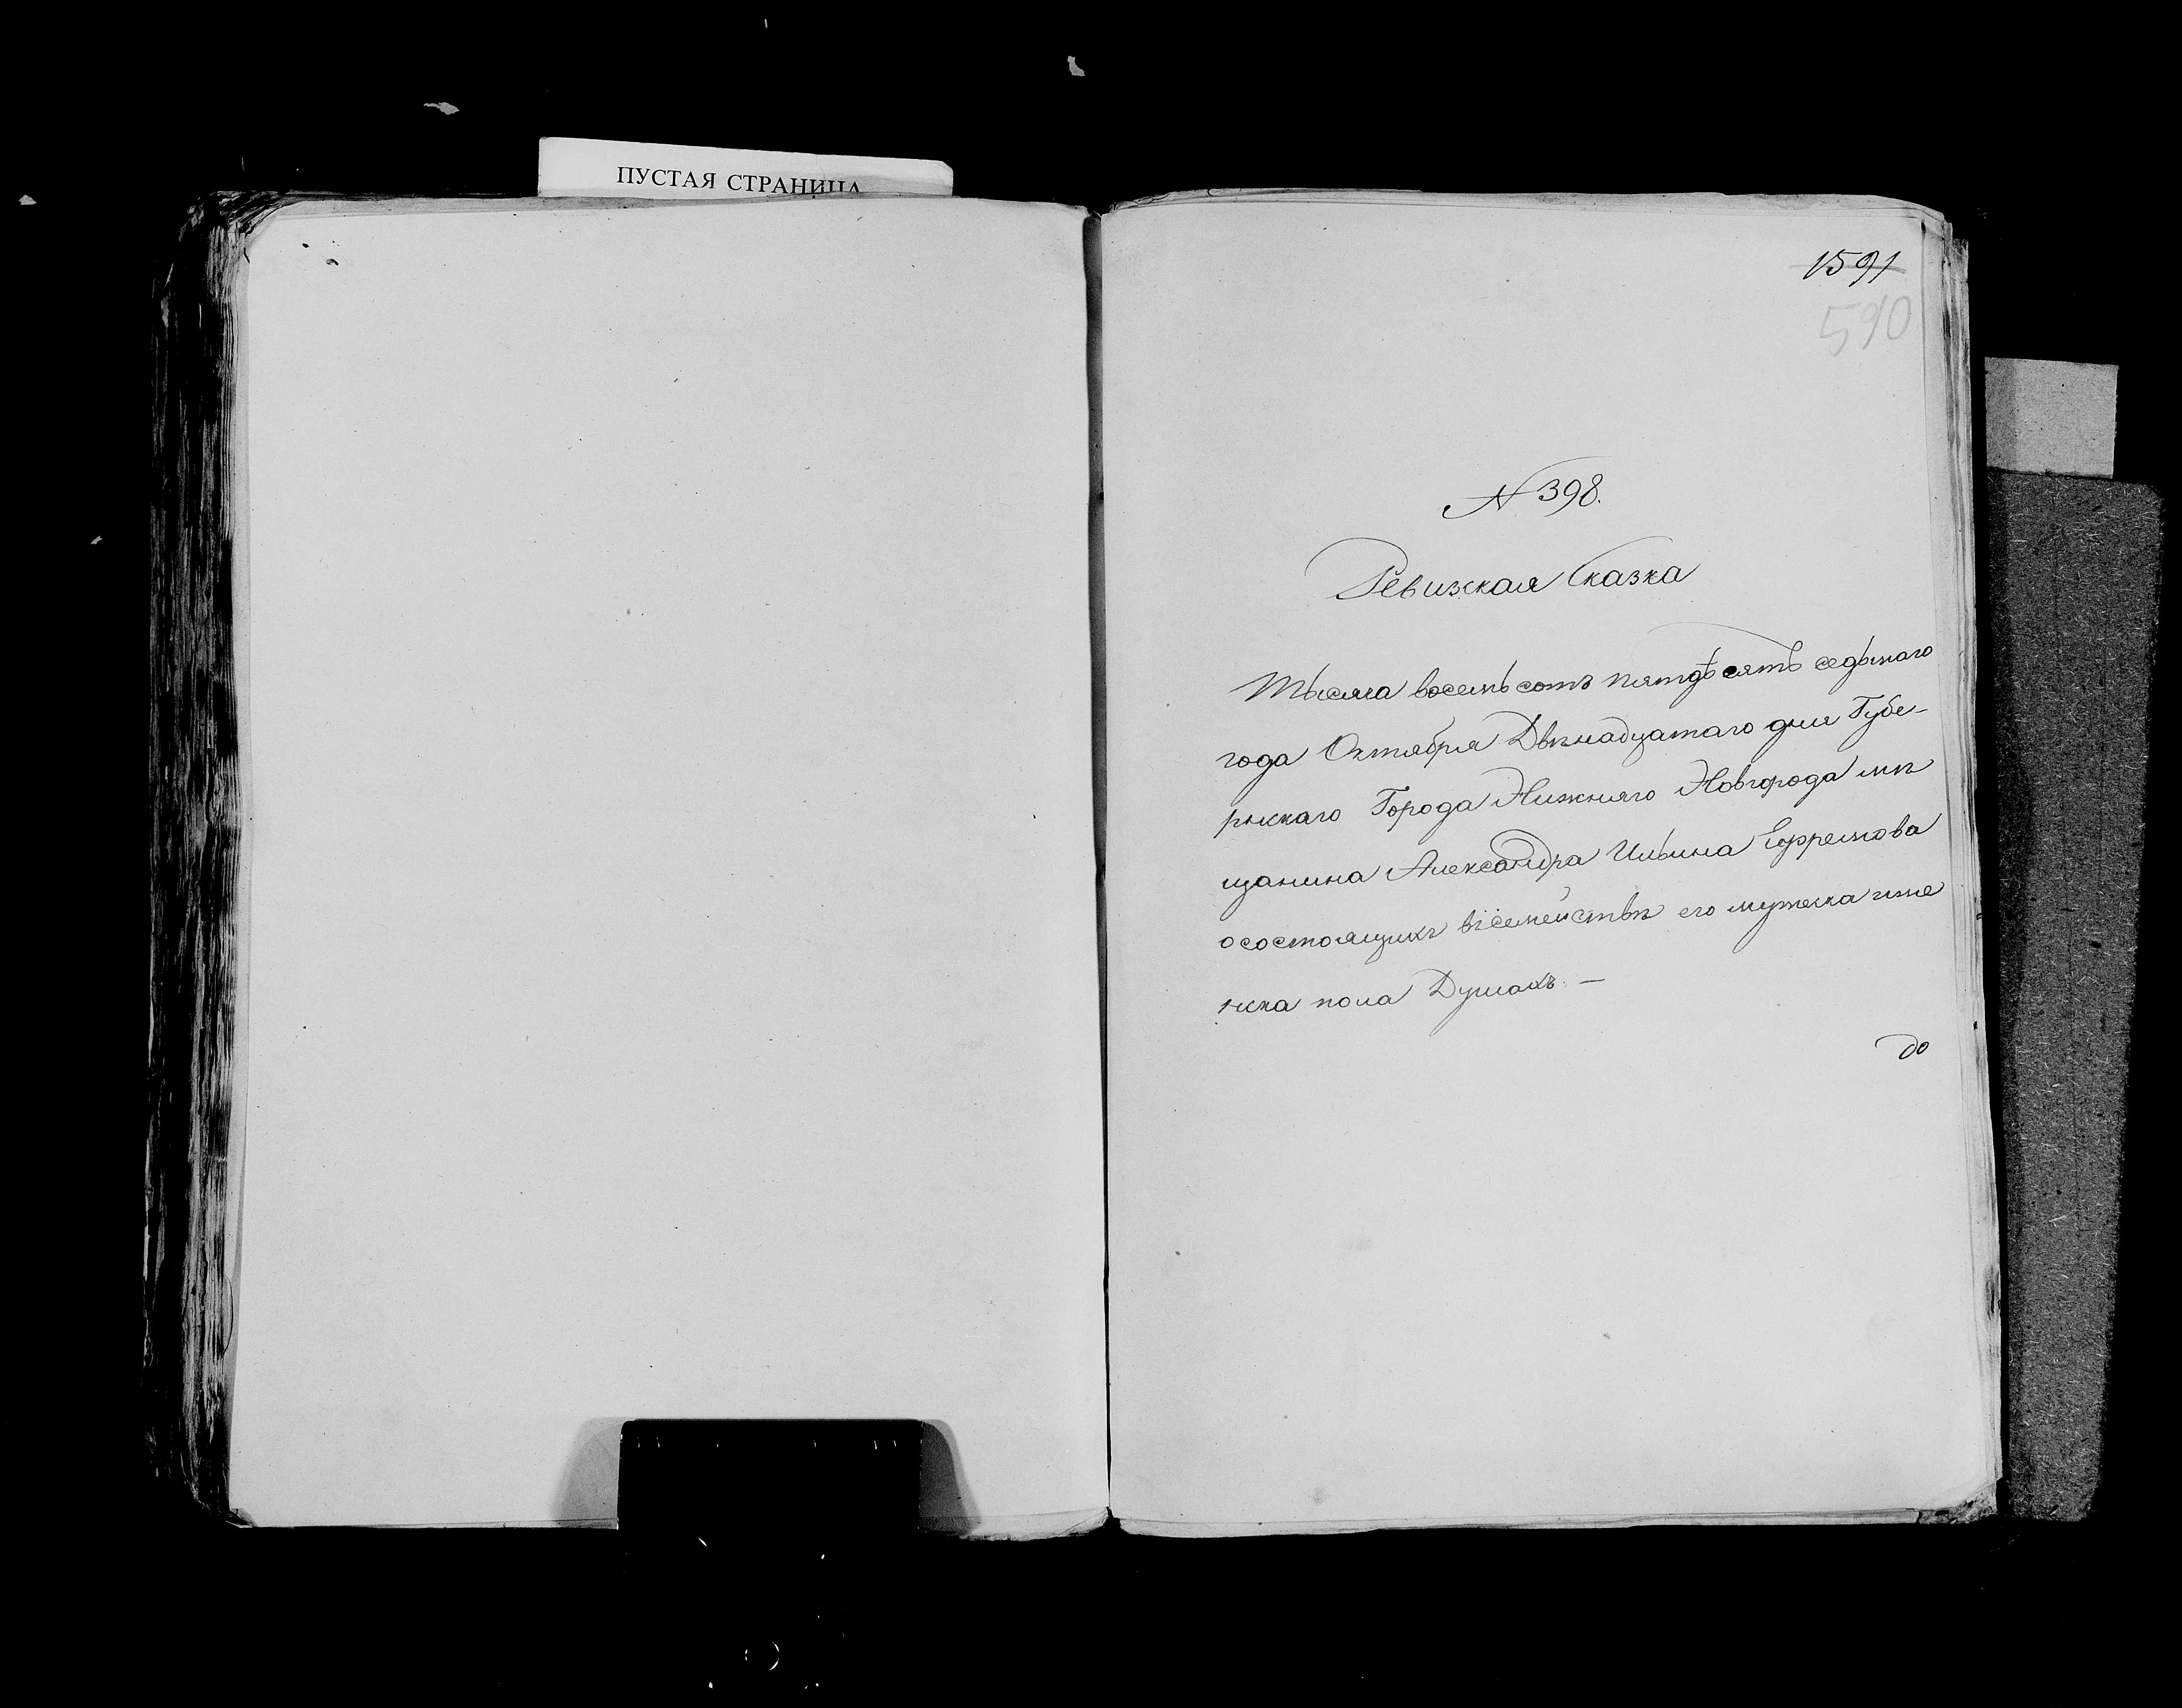 ПУСТАЯ СТРАНИЦА
1591
590
N 398.
Ревизкая Сказка
Тысяча восемьсотъ пятдѣсятъ седьмаго
года Октября Двѣнадцатаго дня Губе-
рнскаго Города Нижняго Новгорода мѣ
щанина Александра Ильина Ефремова
осостоящихъ всемействѣ его мужеска иже
нска пола Душахъ. —
до